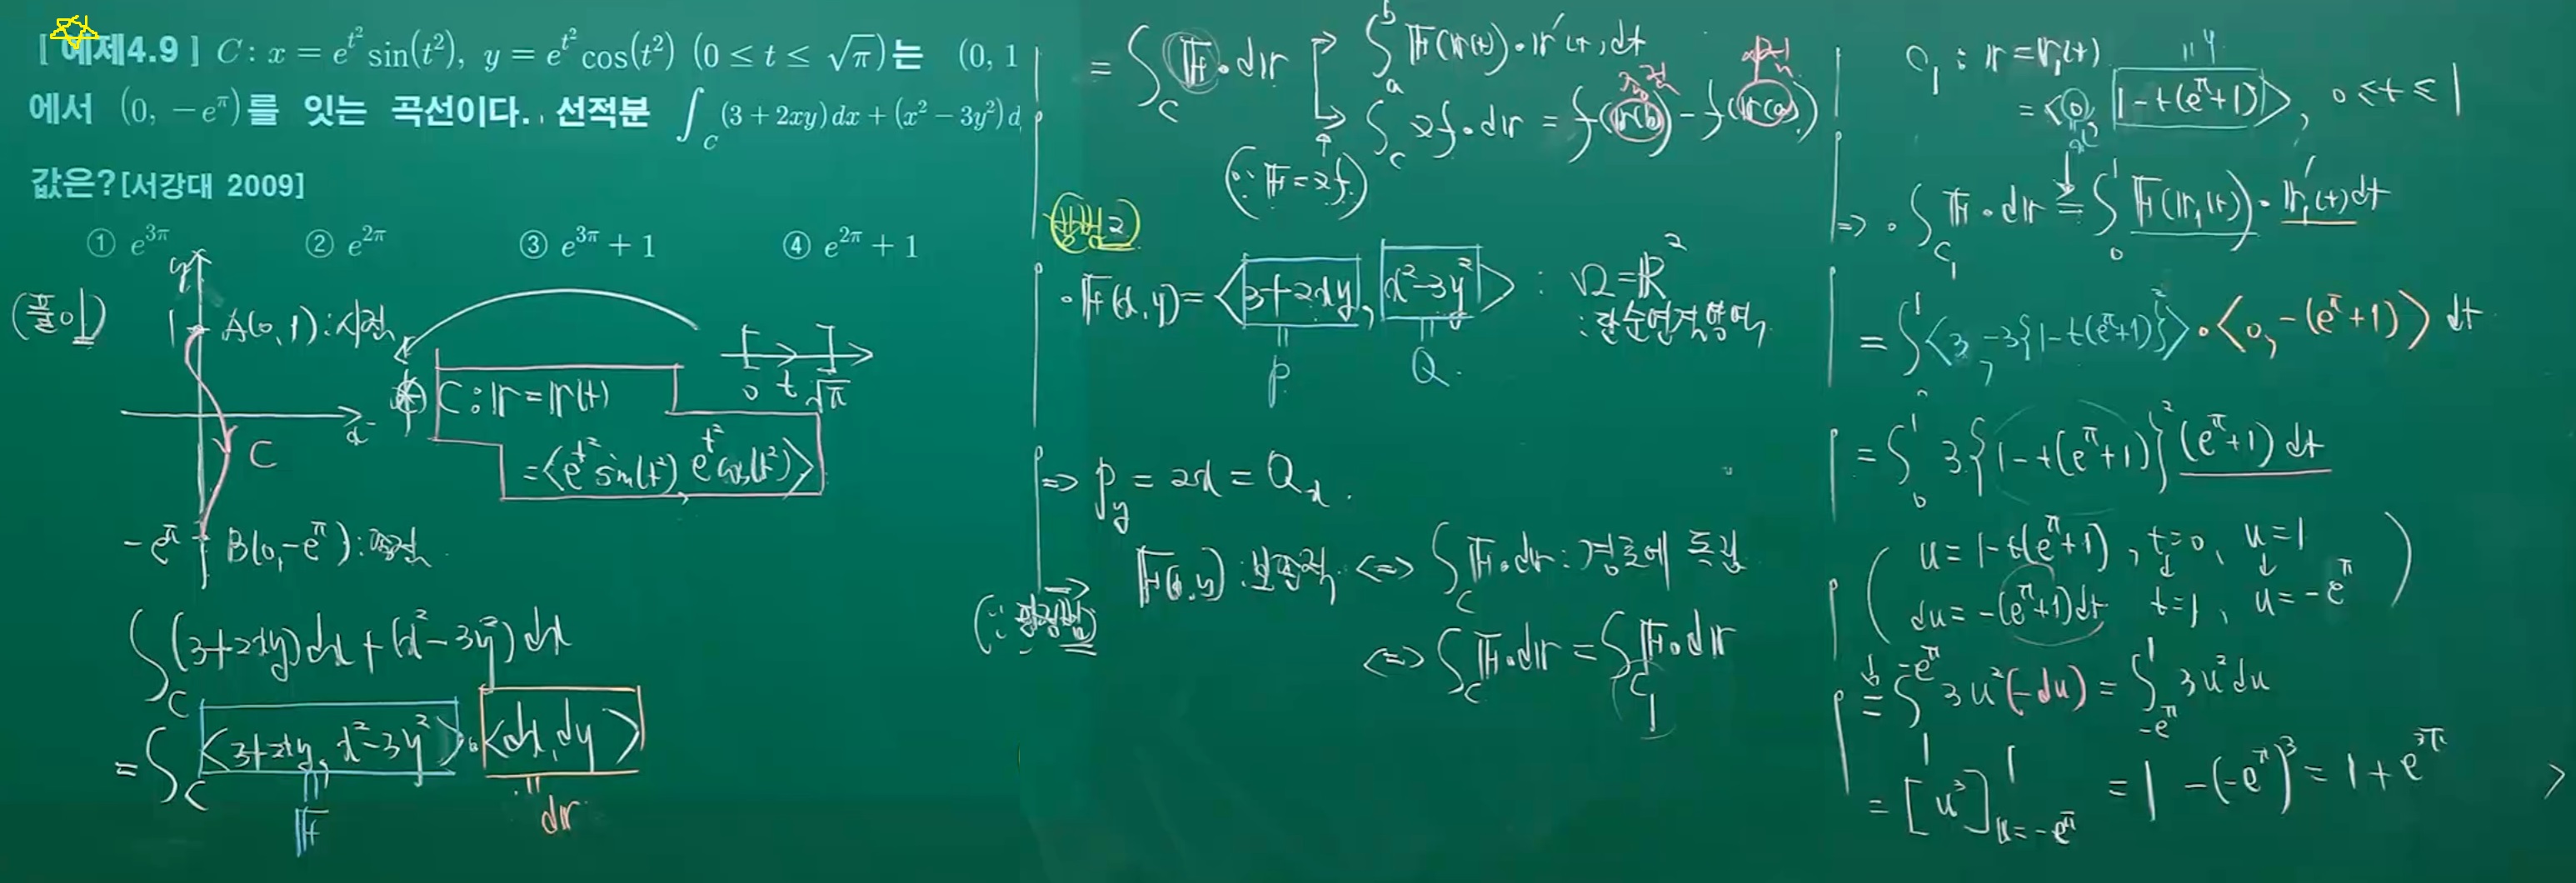 [예제4.9] C : x = e^{t^2} sin(t^2), y = e^{t^2} cos(t^2) (0 ≤ t ≤ √π)는 (0, 1
에서 (0, -e^π)를 잇는 곡선이다. 선적분 ∫_C (3+2xy)dx + (x^2-3y^2)d
값은? [서강대 2009]
① e^{3π} ② e^{2π} ③ e^{3π}+1 ④ e^{2π}+1
(풀이)
y
1 A(0, 1) : 시점
x
C
-e^π B(0, -e^π) : 종점
0 t √π
(*) C : r = r(t)
= <e^{t^2} sin(t^2), e^{t^2} cos(t^2)>
∫_C (3+2xy)dx + (x^2-3y^2)dx
= ∫_C <3+2xy, x^2-3y^2> · <dx, dy>
F
dr
= ∫_C F · dr
∫_a^b F(r(t)) · r'(t) dt
∫_C ∇f · dr = f(r(b)) - f(r(a))
종점
시점
(∵ F = ∇f)
방법2
· F(x, y) = <3+2xy, x^2-3y^2> : Ω = R^2
: 단순연결영역
P
Q
⇒ P_y = 2x = Q_x.
F(x, y) : 보존적 ⇔ ∫_C F · dr : 경로에 독립
⇔ ∫_C F · dr = ∫_{C_1} F · dr
C_1 : r = r_1(t)
= <0, 1-t(e^π+1)>, 0 ≤ t ≤ 1
x
y
⇒ · ∫_{C_1} F · dr = ∫_0^1 F(r_1(t)) · r_1'(t) dt
= ∫_0^1 <3, -3{1-t(e^π+1)}^2> · <0, -(e^π+1)> dt
= ∫_0^1 3{1-t(e^π+1)}^2 (e^π+1) dt
( u = 1-t(e^π+1), t=0, u=1
du = -(e^π+1)dt t=1, u=-e^π )
= ∫_1^{-e^π} 3u^2(-du) = ∫_{-e^π}^1 3u^2 du
= [u^3]_{u=-e^π}^1 = 1-(-e^π)^3 = 1+e^{3π}